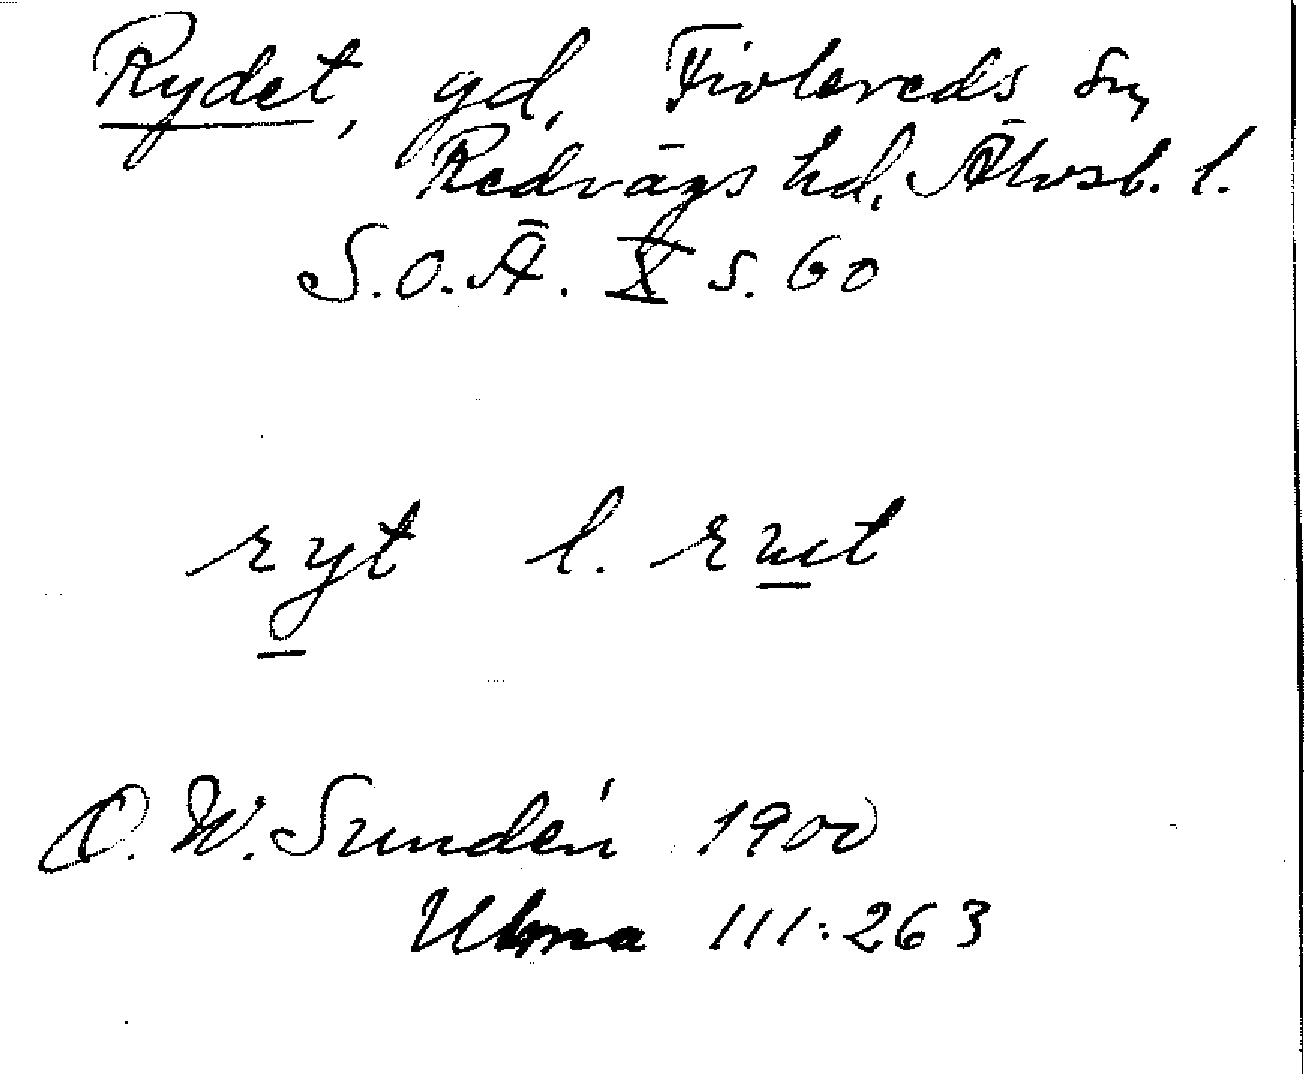 Rydet, gd, Fivlereds sn,
Redvägs hd, Älvsb. l.
S.O.Ä. X s. 60
ryt l. rut
D. W. Sundén 1900
Ulma 111:263